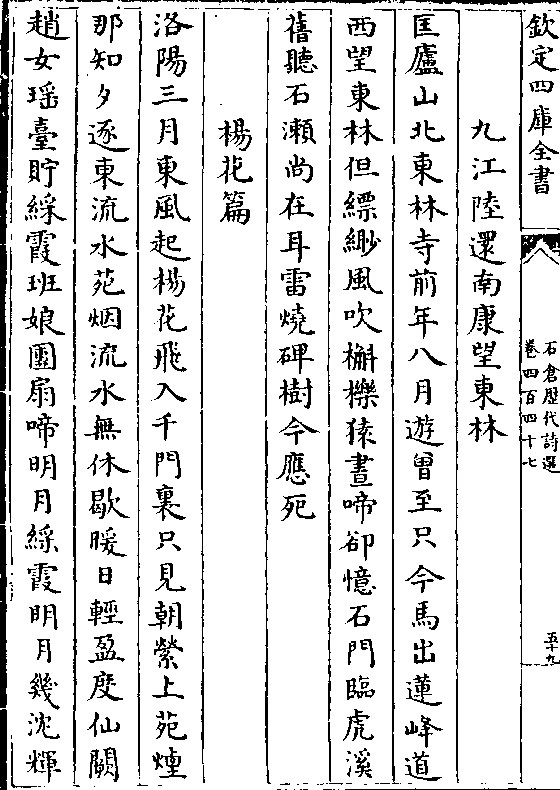 欽定四庫全書
石倉歷代詩選
卷四百四十七
五十九
九江陸還南康望東林
匡廬山北東林寺前年八月遊曽至只今馬出蓮峰道
西望東林但縹緲風吹槲櫟猿晝啼卻憶石門臨虎溪
舊聽石瀨尚在耳雷燒碑樹今應死
楊花篇
洛陽三月東風起楊花飛入千門裏只見朝縈上苑煙
那知夕逐東流水苑烟流水無休歇暖日輕盈度仙闕
趙女瑶臺貯綵霞班娘團扇啼明月綵霞明月幾沈輝